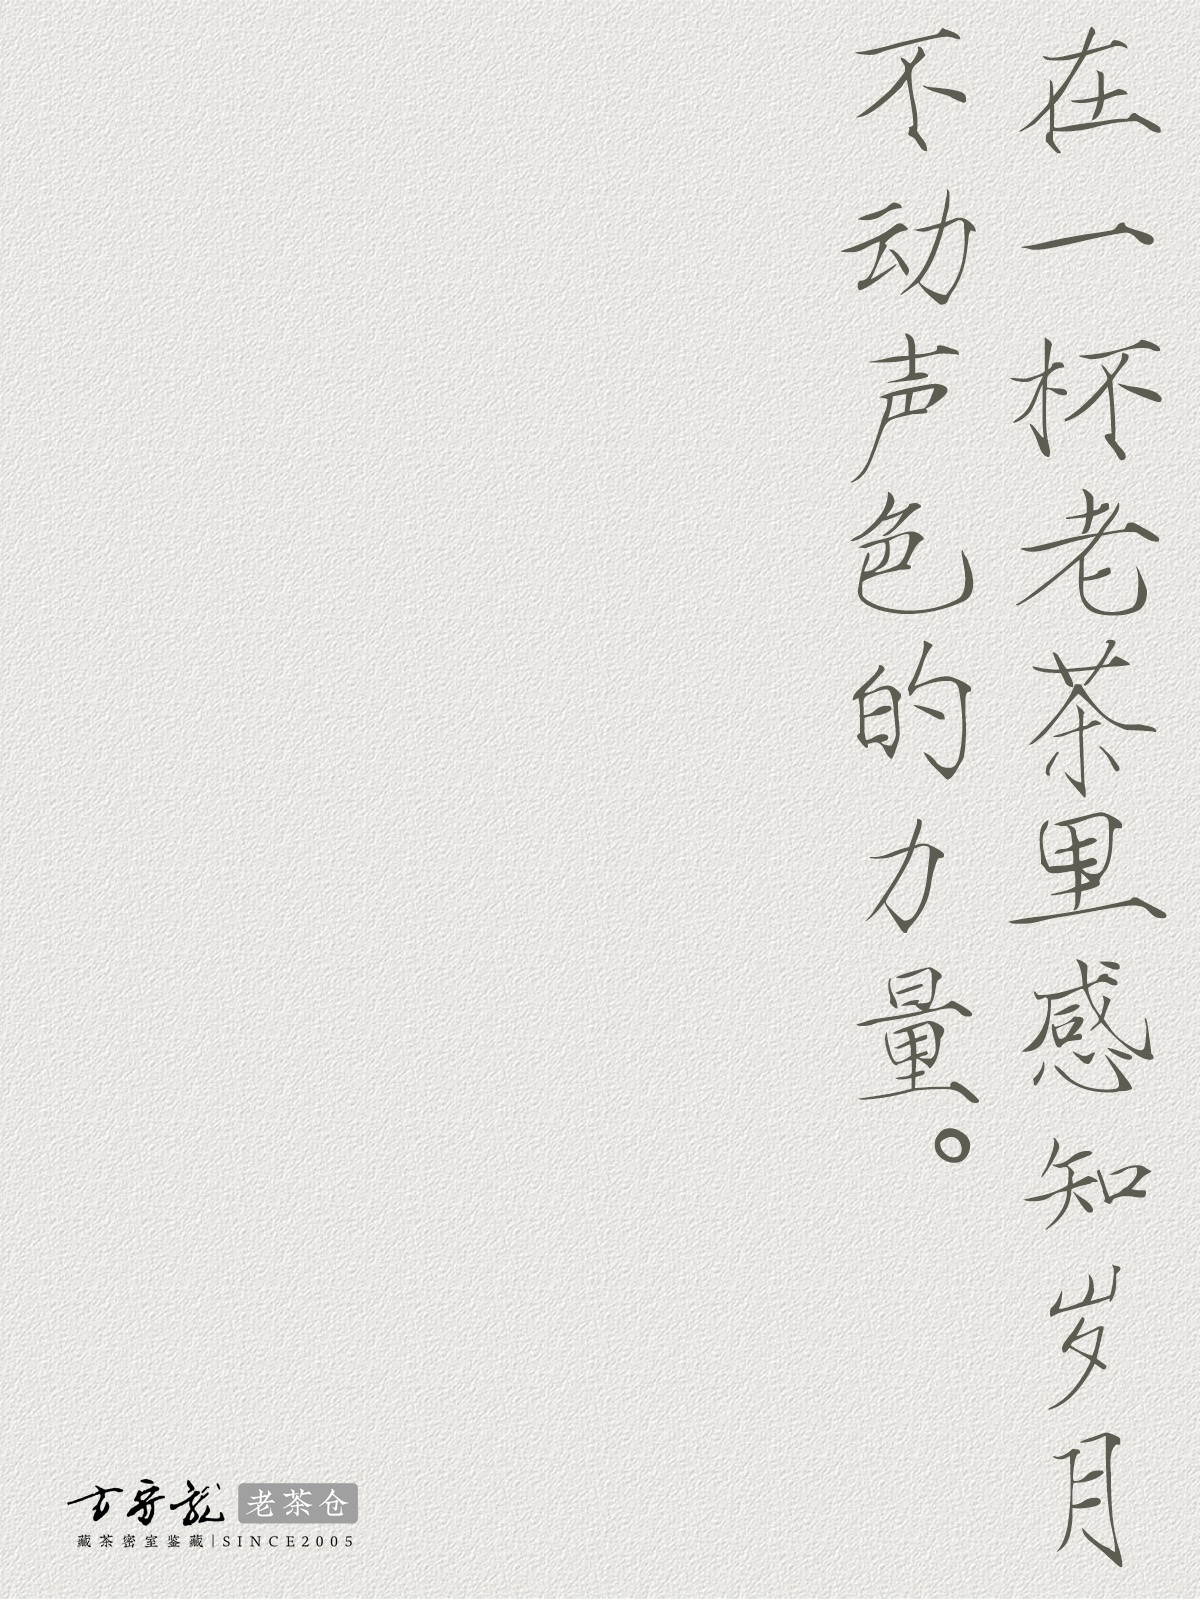 在一杯老茶里感知岁月
不动声色的力量。
老茶仓
藏茶密室鉴藏|SINCE2005